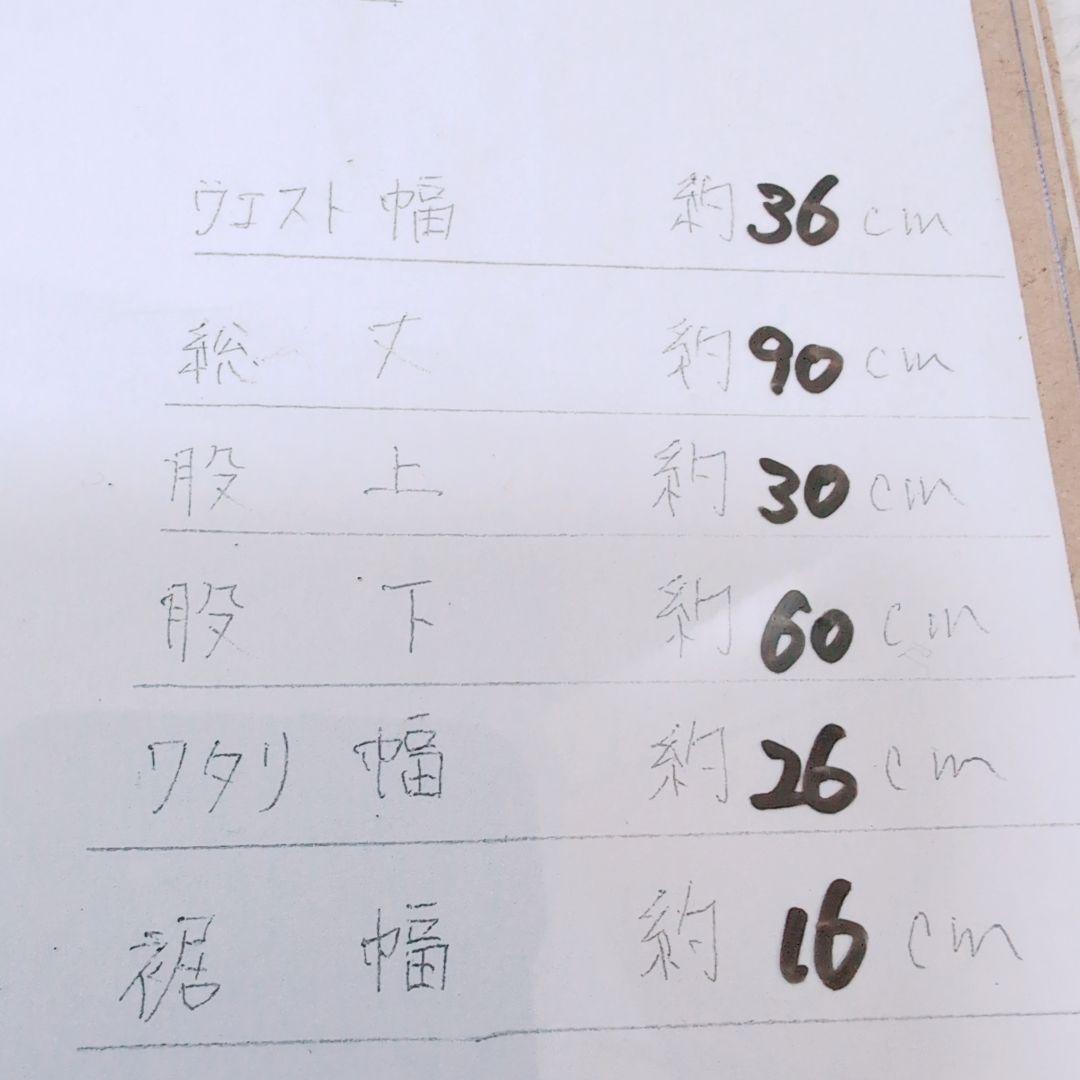 ウエスト幅 約36cm
総丈 約90cm
股上 約30cm
股下 約60cm
ワタリ幅 約26cm
裾幅 約16cm